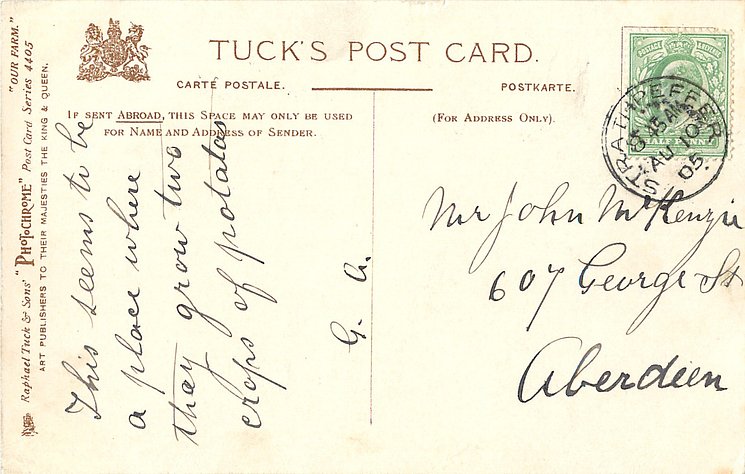 TUCK'S POST CARD.
CARTE POSTALE.
POSTKARTE.
IF SENT ABROAD, THIS SPACE MAY ONLY BE USED
FOR NAME AND ADDRESS OF SENDER.
(FOR ADDRESS ONLY).
"OUR FARM."
Raphael Tuck & Sons' "PHOTOCHROME" Post Card Series 4405
ART PUBLISHERS TO THEIR MAJESTIES THE KING & QUEEN.
This seems to be
a place where
they grow two
crops of potatas
G. A.
POSTAGE
HALF PENNY
STRATHPEFFER
8 45 AM
AU 10
05
Mr John McKenzie
607 George St
Aberdeen